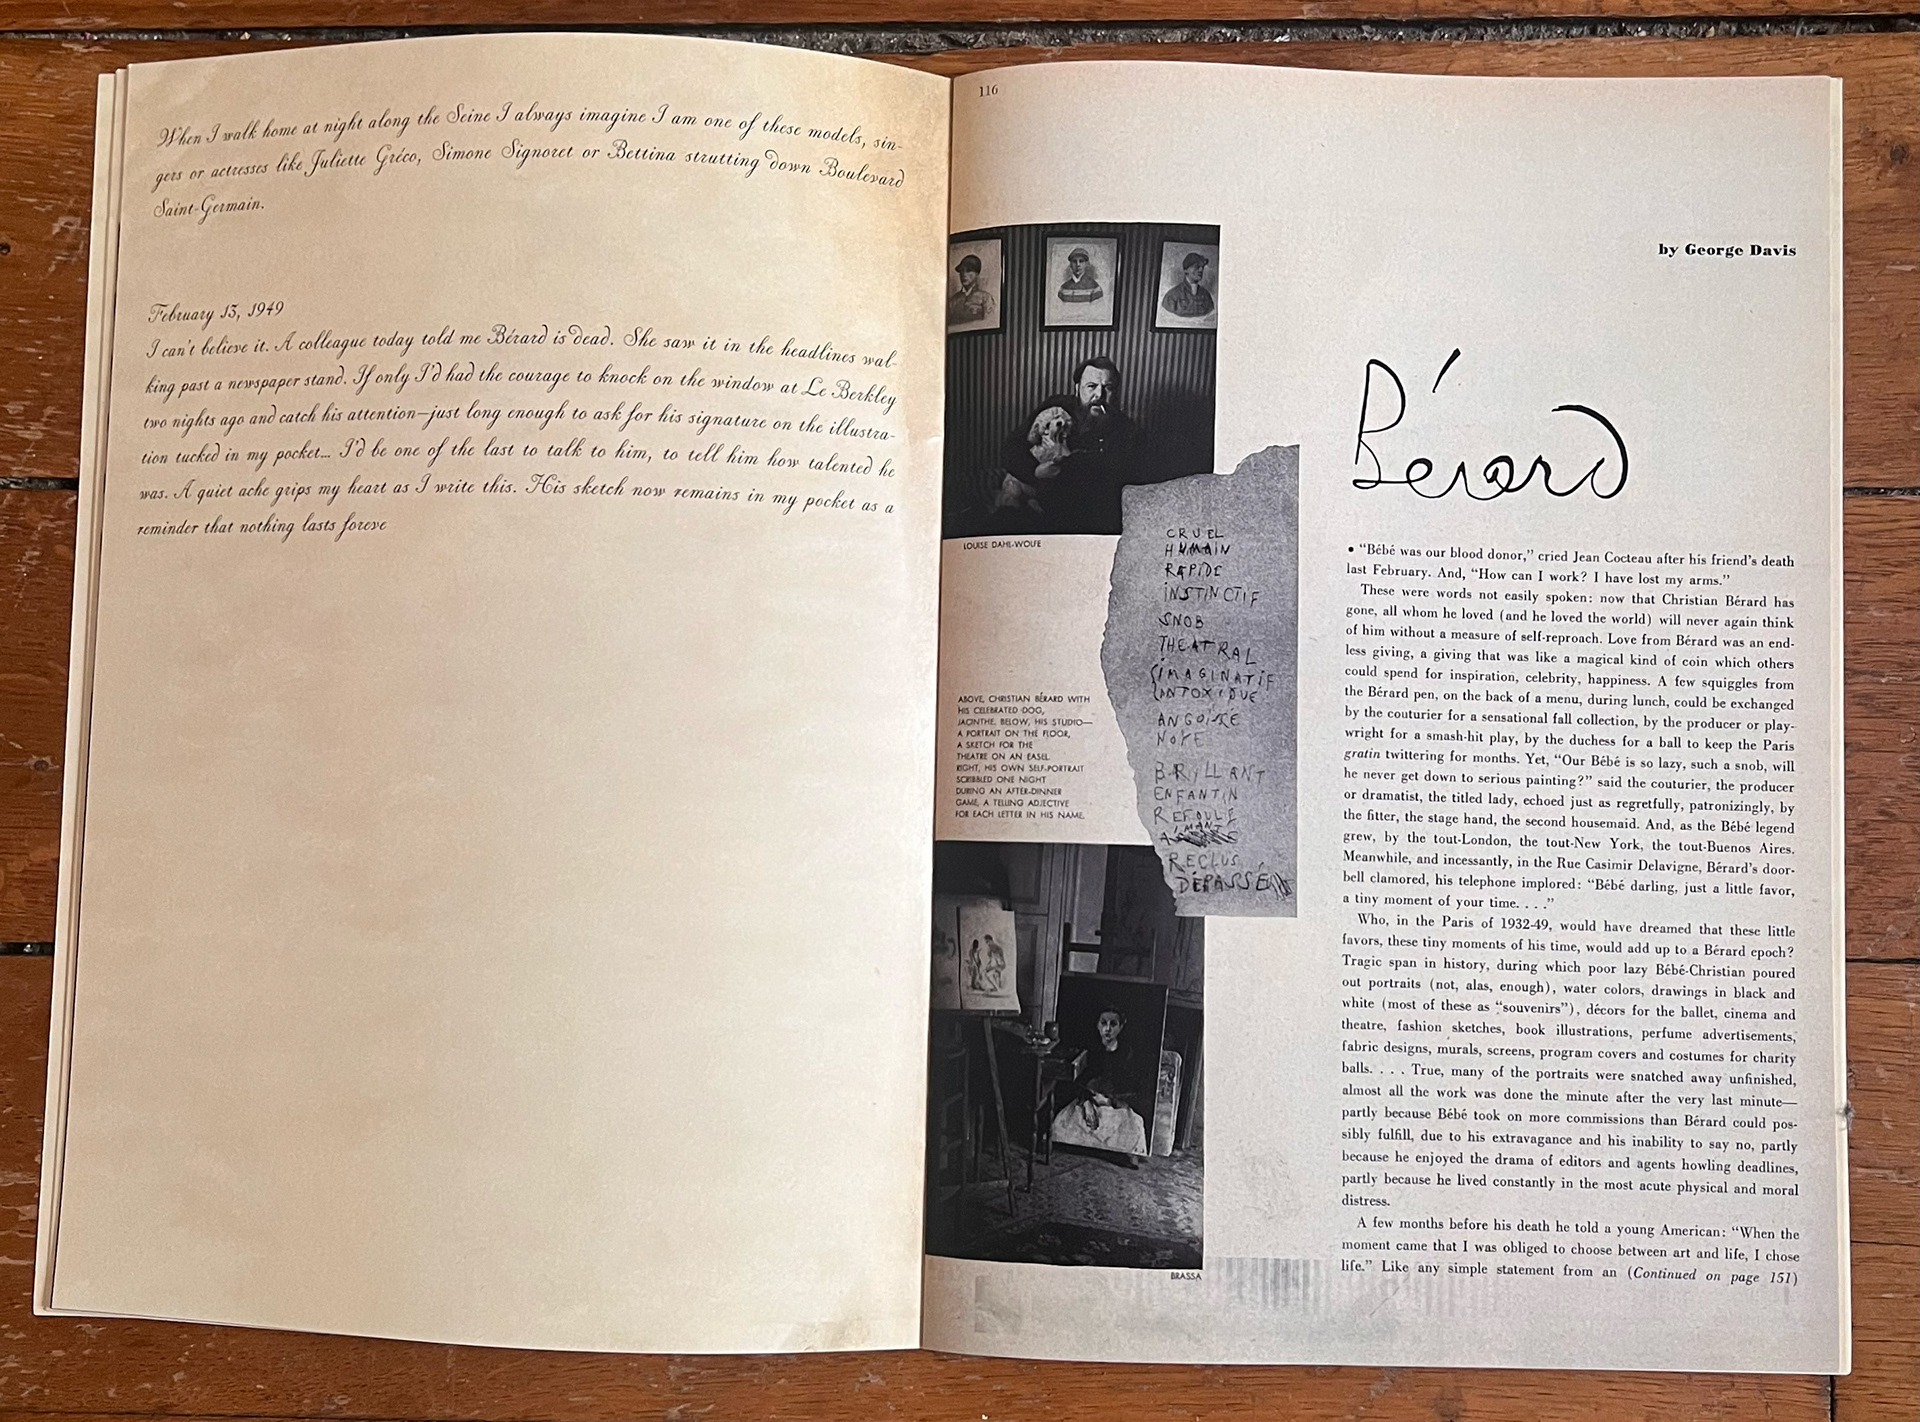 When I walk home at night along the Seine I always imagine I am one of these models, sin-
gers or actresses like Juliette Gréco, Simone Signoret or Bettina strutting down Boulevard
Saint-Germain.
February 13, 1949
I can't believe it. A colleague today told me Bérard is dead. She saw it in the headlines wal-
king past a newspaper stand. If only I'd had the courage to knock on the window at Le Berkley
two nights ago and catch his attention—just long enough to ask for his signature on the illustra-
tion tucked in my pocket... I'd be one of the last to talk to him, to tell him how talented he
was. A quiet ache grips my heart as I write this. His sketch now remains in my pocket as a
reminder that nothing lasts foreve
116
LOUISE DAHL-WOLFE
ABOVE, CHRISTIAN BÉRARD WITH
HIS CELEBRATED DOG,
JACINTHE. BELOW, HIS STUDIO—
A PORTRAIT ON THE FLOOR,
A SKETCH FOR THE
THEATRE ON AN EASEL.
RIGHT, HIS OWN SELF-PORTRAIT
SCRIBBLED ONE NIGHT
DURING AN AFTER-DINNER
GAME, A TELLING ADJECTIVE
FOR EACH LETTER IN HIS NAME.
CRUEL
HUMAIN
RAPIDE
INSTINCTIF
SNOB
THEATRAL
IMAGINATIF
INTOXIQUE
ANGOISSE
NOYE
BRILLANT
ENFANTIN
REFOULE
AIMANT
RECLUS
DÉPASSÉ
BRASSA
by George Davis
Bérard
• “Bébé was our blood donor,” cried Jean Cocteau after his friend’s death
last February. And, “How can I work? I have lost my arms.”
These were words not easily spoken: now that Christian Bérard has
gone, all whom he loved (and he loved the world) will never again think
of him without a measure of self-reproach. Love from Bérard was an end-
less giving, a giving that was like a magical kind of coin which others
could spend for inspiration, celebrity, happiness. A few squiggles from
the Bérard pen, on the back of a menu, during lunch, could be exchanged
by the couturier for a sensational fall collection, by the producer or play-
wright for a smash-hit play, by the duchess for a ball to keep the Paris
gratin twittering for months. Yet, “Our Bébé is so lazy, such a snob, will
he never get down to serious painting?” said the couturier, the producer
or dramatist, the titled lady, echoed just as regretfully, patronizingly, by
the fitter, the stage hand, the second housemaid. And, as the Bébé legend
grew, by the tout-London, the tout-New York, the tout-Buenos Aires.
Meanwhile, and incessantly, in the Rue Casimir Delavigne, Bérard’s door-
bell clamored, his telephone implored: “Bébé darling, just a little favor,
a tiny moment of your time. . . .”
Who, in the Paris of 1932-49, would have dreamed that these little
favors, these tiny moments of his time, would add up to a Bérard epoch?
Tragic span in history, during which poor lazy Bébé-Christian poured
out portraits (not, alas, enough), water colors, drawings in black and
white (most of these as “souvenirs”), décors for the ballet, cinema and
theatre, fashion sketches, book illustrations, perfume advertisements,
fabric designs, murals, screens, program covers and costumes for charity
balls. . . . True, many of the portraits were snatched away unfinished,
almost all the work was done the minute after the very last minute—
partly because Bébé took on more commissions than Bérard could pos-
sibly fulfill, due to his extravagance and his inability to say no, partly
because he enjoyed the drama of editors and agents howling deadlines,
partly because he lived constantly in the most acute physical and moral
distress.
A few months before his death he told a young American: “When the
moment came that I was obliged to choose between art and life, I chose
life.” Like any simple statement from an (Continued on page 151)